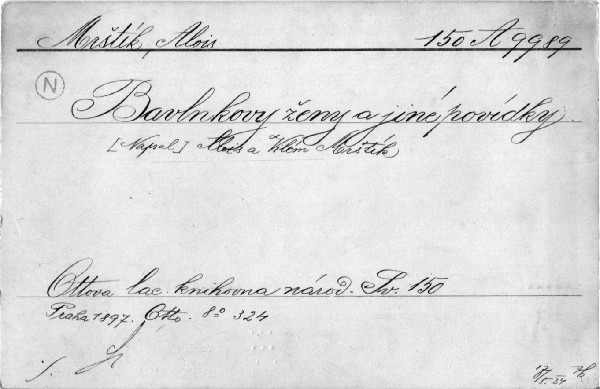 Mrštík, Alois 150 A 9989
N
Bavlnkovy ženy a jiné povídky.
[Napsal] Alois a Vilém Mrštík
Ottova lac. knihovna národ. Sv. 150
Praha 1897. Otto. 8° 324